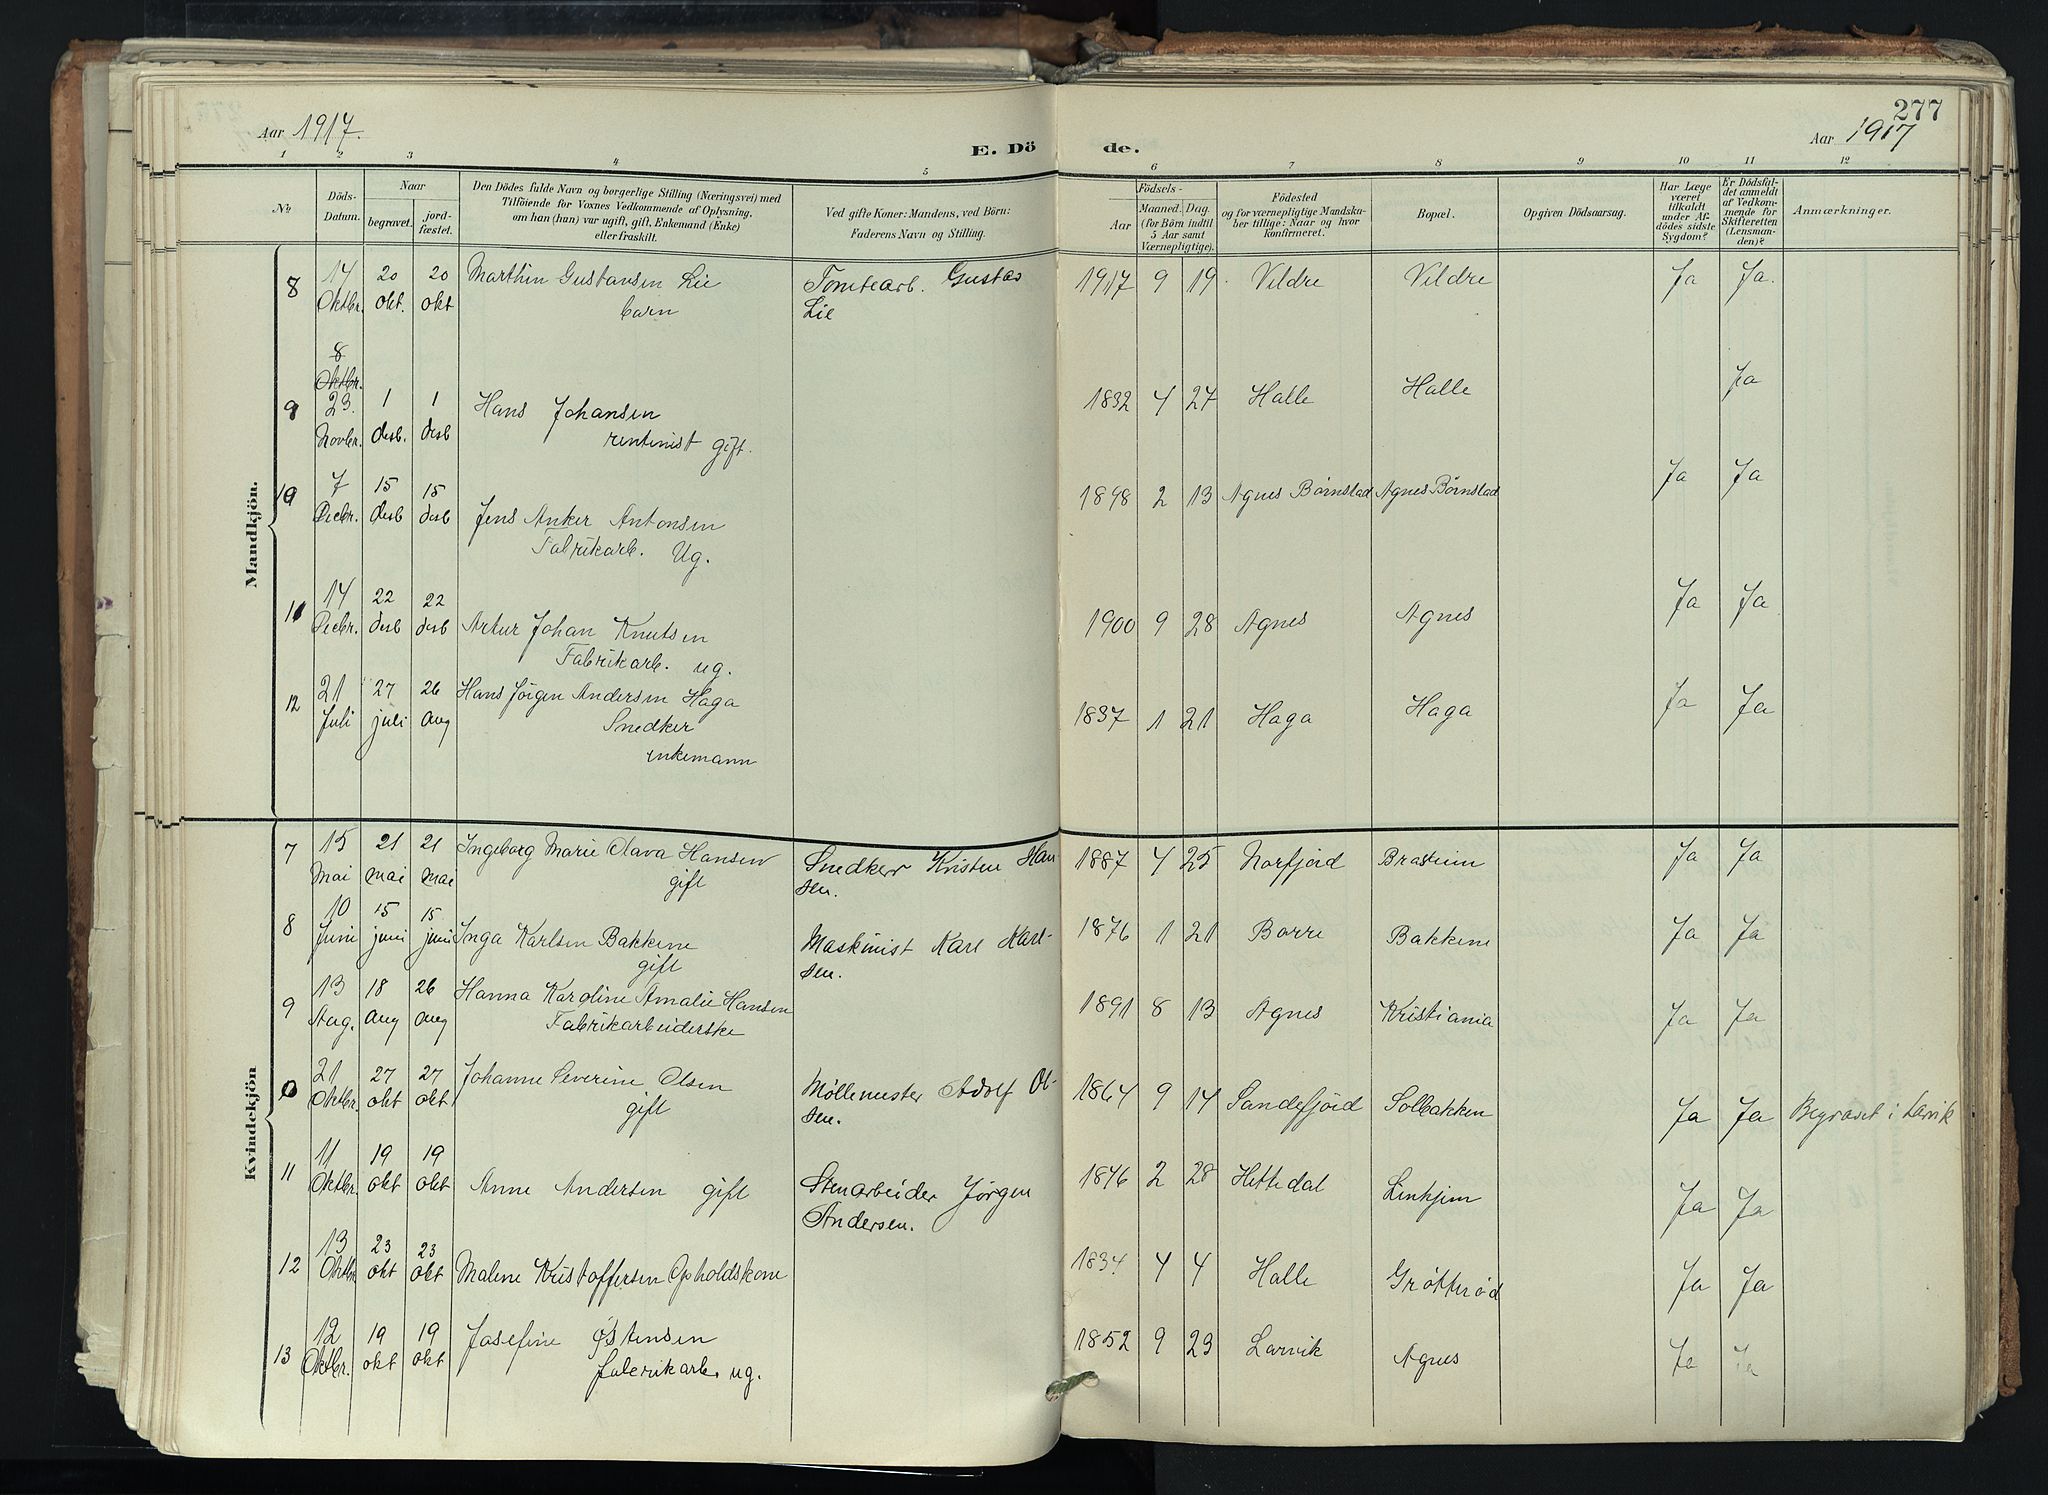 277
Aar 1917.
E. Dö de.
Aar 1917
1 2 3 4 5 6 7 8 9 10 11 12
No
Döds-Datum.
Naar
begravet.
jord-fæstet.
Den Dödes fulde Navn og borgerlige Stilling (Næringsvei) med
Tilföiende for Voxnes Vedkommende af Oplysning,
om han (hun) var ugift, gift, Enkemand (Enke)
eller fraskilt.
Ved gifte Koner: Mandens, ved Börn:
Faderens Navn og Stilling.
Födsels-
Aar
Maaned. Dag.
(for Börn indtil
5 Aar samt
Værnepligtige).
Födested
og for værnepligtige Mandska-
ber tillige: Naar og hvor
konfirmeret.
Bopæl.
Opgiven Dödsaarsag.
Har Læge
været
tilkaldt
under Af-
dödes sidste
Sygdom?
Er Dödsfal-
det anmeldt
af Vedkom-
mende for
Skifteretten
(Lensman-
den)?
Anmærkninger.
Mandkjön.
8 14 Oktbr. 20 okt. 20 okt Marthin Gustansen Lie barn Tomtearb. Gustav Lie 1917 9 19 Vildre Vildre Ja Ja.
8 Oktbr.
9 23. Novbr. 1 desb. 1 desb Hans Johansen rentenist gift. 1832 4 27 Halle Halle Ja
10 7 Decbr. 15 desb 15 desb Jens Anker Antonsen Fabrikarb. Ug. 1898 2 13 Agnes Börnstad Agnes Børnstad Ja Ja
11 14 Decbr. 22 desb 22 desb Artur Johan Knutsen Fabrikarb. ug. 1900 9 28 Agnes Agnes Ja Ja
12 21 Juli 27 juli 26 aug Hans Jörgen Andersen Haga Snedker enkemann 1837 1 21 Haga Haga Ja Ja
Kvindekjön
7 15 Mai 21 mai 21 mai Ingeborg Marie Olava Hansen gift Snedker Kristen Han sen. 1887 4 25 Norfjord Ja Ja
8 10 Juni 15 juni 15 juni Inga Karlsen Bakkene gift Maskinist Karl Karl- sen. 1876 1 21 Borre Bakkene Ja Ja
9 13 Aug. 18 aug 26 aug Hanna Karoline Amalie Hansen Fabrikarbeiderske 1891 8 13 Agnes Kristiania Ja Ja
0 21 Oktbr. 27 okt 27 okt Johanne Severine Olsen gift Möllemester Adolf Ol- sen. 1864 9 14 Sandefjord Solbakken Ja Ja Begravet i Larvik
11 11 Oktbr. 19 okt 19 okt Anne Andersen gift Stenarbeider Jörgen Andersen. 1846 2 28 Hittedal Ja Ja
12 13 Oktbr 23 okt 23 okt Malene Kristoffersen Opholdskone 1834 4 4 Halle Grøtterød Ja Ja
13 12 Oktbr. 19 okt 19 okt Josefine Østensen fabrikarb. ug. 1852 9 23 Larvik Agnes Ja Ja